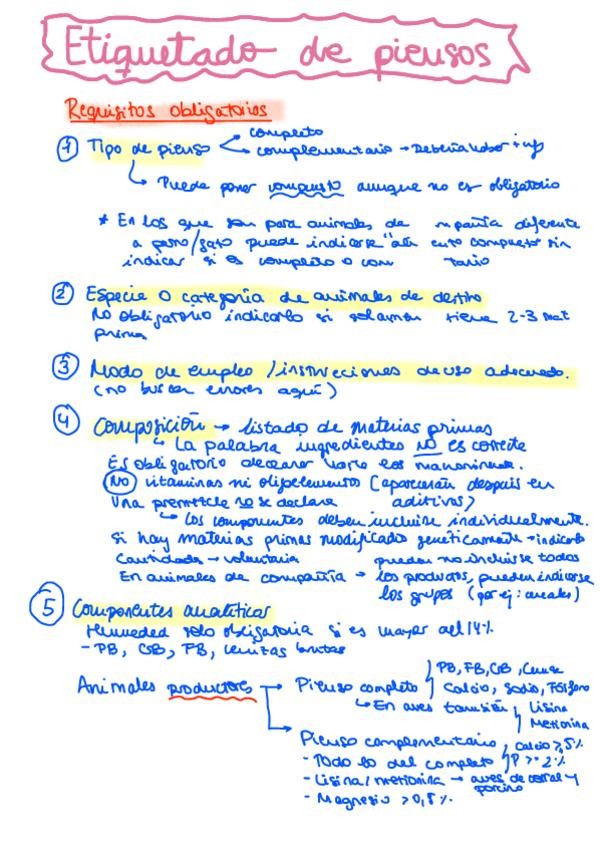 Etiquetado de piensos
Requisitos obligatorios
1 Tipo de pienso
completo
complementario → Debería haber + inf
Puede poner compuesto aunque no es obligatorio
* En los que son para animales de mpañía diferente
a perro/gato puede indicarse "ali ento compuesto" sin
indicar si es completo o com tario
2 Especie o categoría de animales de destino
No obligatorio indicarlo si solamen tiene 2-3 mat
primas
3 Modo de empleo / instrucciones de uso adecuado.
(no buscar errores aquí)
4 Composición → listado de materias primas
La palabra ingredientes NO es correcta
Es obligatorio declarar
NO vitaminas ni oligoelementos (aparecerán después en
aditivos)
Una premezcla no se declara
Los componentes deben incluirse individualmente.
Si hay materias primas modificado genéticamente → indicarlo
Cantidades → voluntaria
En animales de compañía → pueden no incluirse todos
los productos, pueden indicarse
los grupos (por ej: cereales)
5 Componentes analíticos
Humedad solo obligatoria si es mayor al 14%
- PB, GB, FB, cenizas brutas
Animales productores
Pienso completo
PB, FB, GB, Ceniza
Calcio, Sodio, Fósforo
En aves también
Lisina
Metionina
Pienso complementario
Calcio ≥ 5%
P >= 2%
- Todo lo del completo
- Lisina/metionina → aves de corral y
porcino
- Magnesio > 0,5%